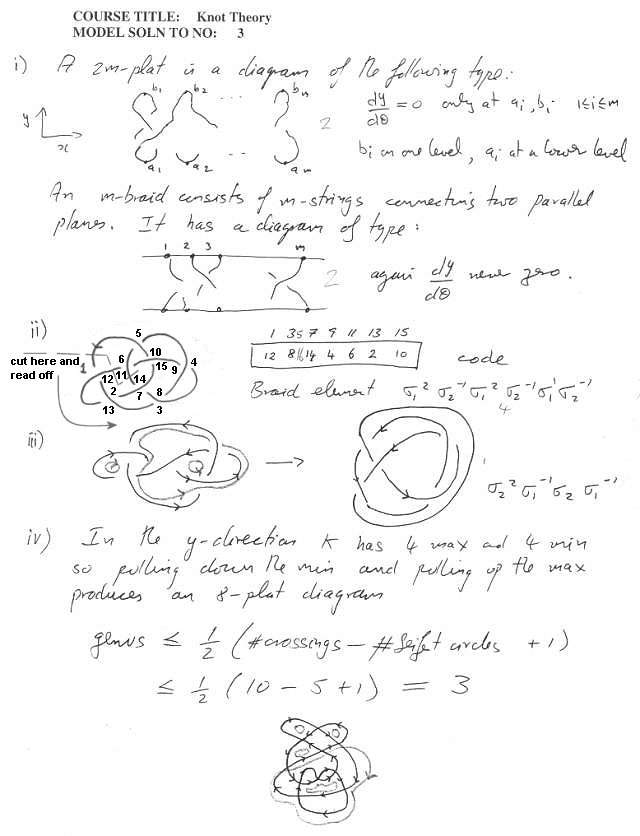 COURSE TITLE: Knot Theory
MODEL SOLN TO NO: 3
i) A 2m-plat is a diagram of the following type:
b1 b2 ... bm
y
x
a1 a2 .. am
2
dy/dθ = 0 only at ai, bi 1≤i≤m
bi on one level, ai at a lower level
An m-braid consists of m-strings connecting two parallel
planes. It has a diagram of type:
1 2 3 m
2
again dy/dθ never zero.
ii)
cut here and
read off
5
1 6 10 4
12 11 14 15 9
2 7 8
13 3
1 3 5 7 9 11 13 15
12 8 14 4 6 2 10
code
Braid element σ1² σ2⁻¹ σ1² σ2⁻¹ σ1¹ σ2⁻¹
4
iii)
σ2² σ1⁻¹ σ2 σ1⁻¹
iv) In the y-direction K has 4 max and 4 min
so pulling down the min and pulling up the max
produces an 8-plat diagram
genus ≤ 1/2 (#crossings − #Seifet circles + 1)
≤ 1/2 (10 − 5 + 1) = 3